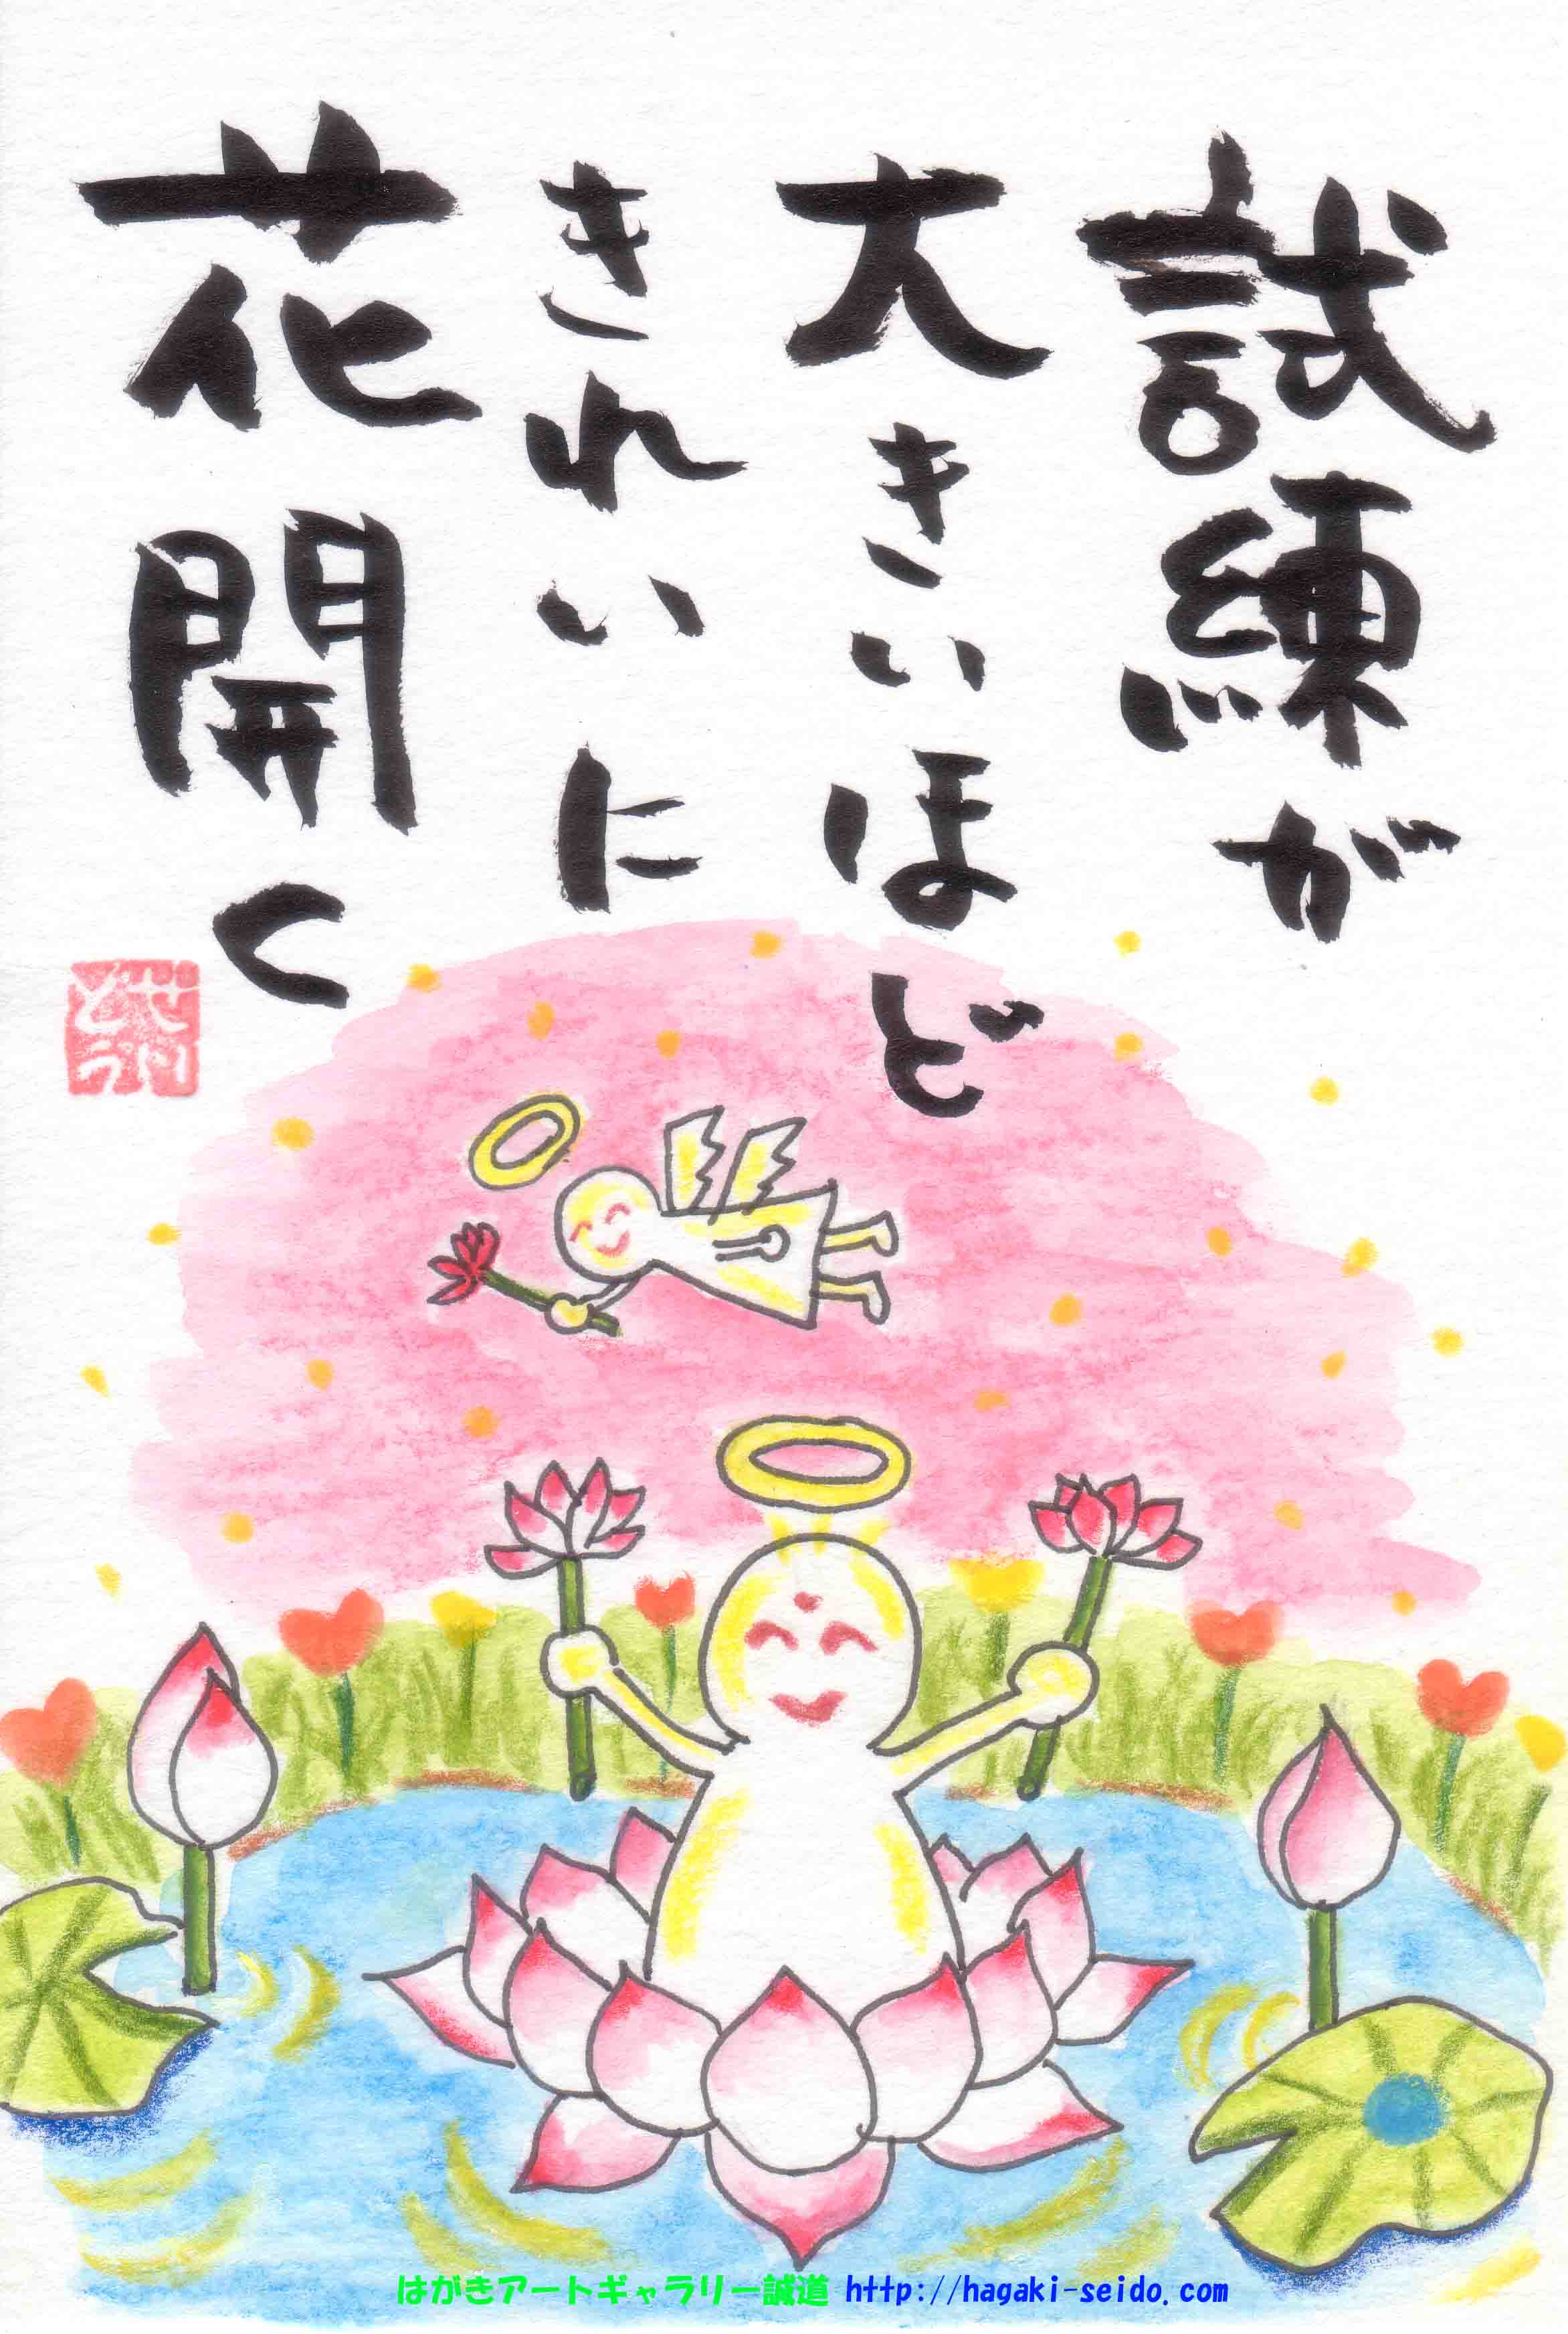 試練が
大きいほど
きれいに
花開く
せいどう
はがきアートギャラリー誠道 http://hagaki-seido.com